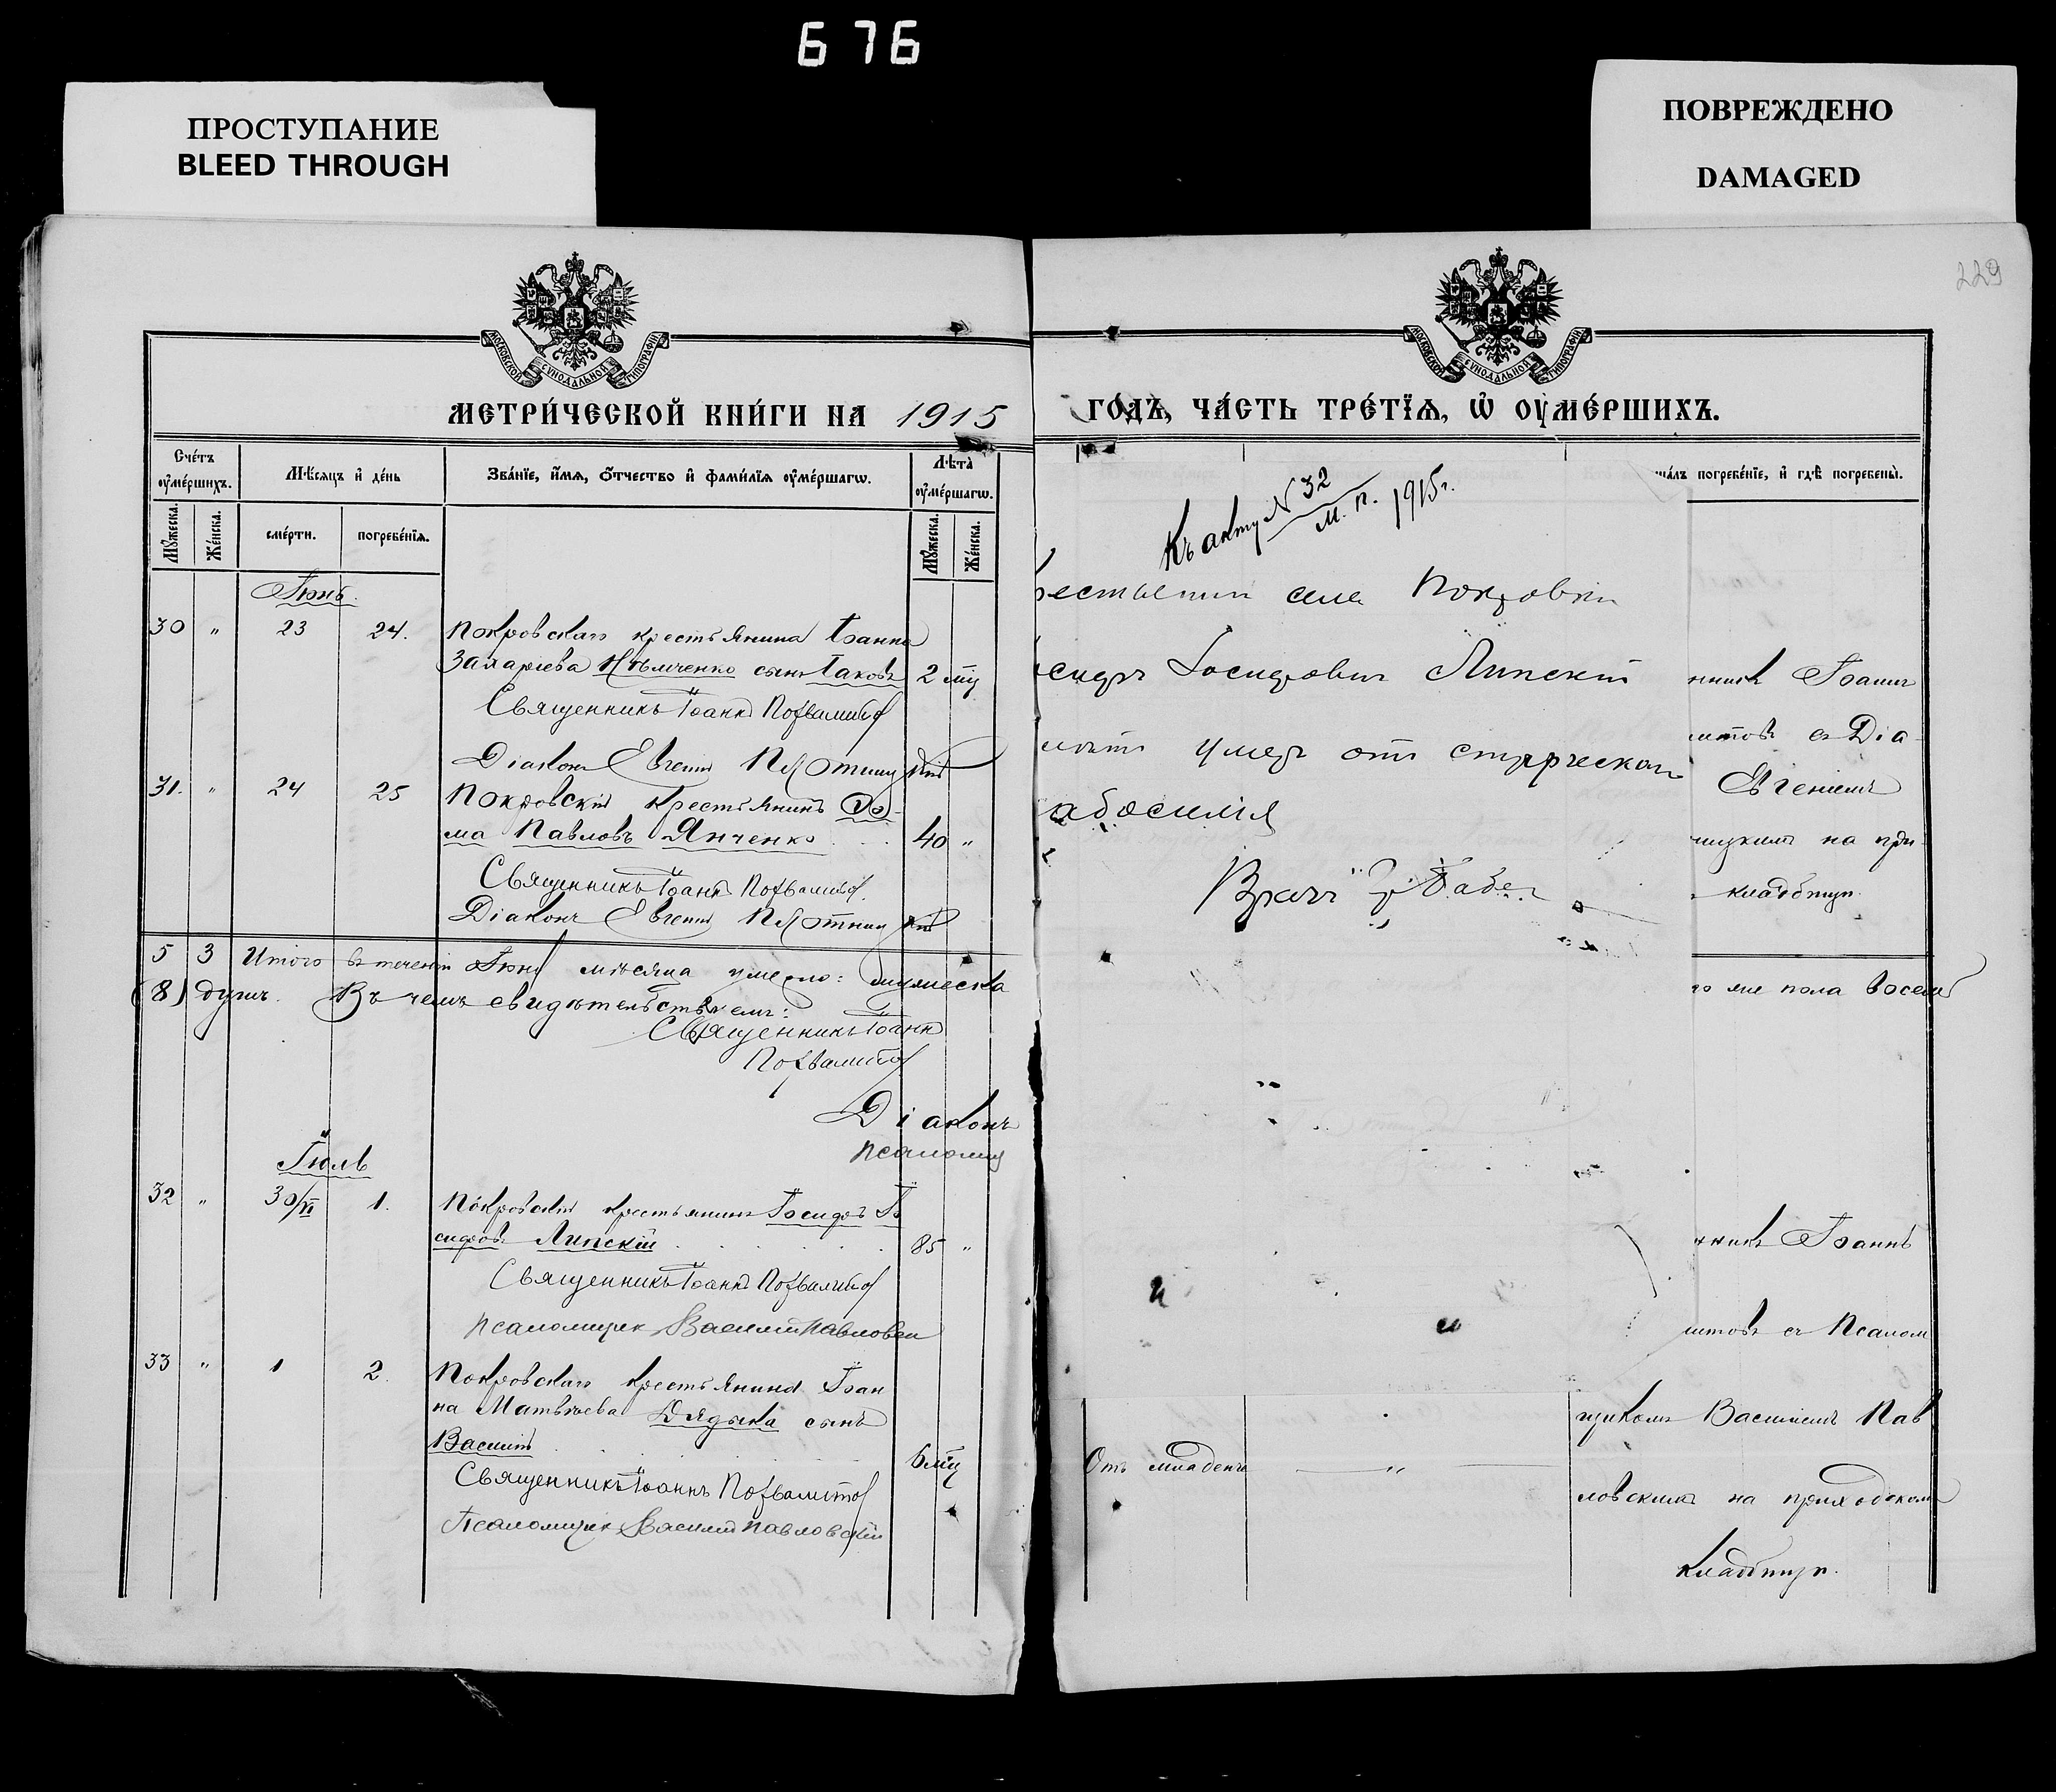 676
ПРОСТУПАНИЕ
BLEED THROUGH
ПОВРЕЖДЕНО
DAMAGED
229
МОСКОВСКОЙ СѴНОДАЛЬНОЙ ТИПОГРАФІИ
МОСКОВСКОЙ СѴНОДАЛЬНОЙ ТИПОГРАФІИ
МЕТРИ́ЧЕСКОЙ КНИ́ГИ НА 1915
ГОДЪ, ЧА́СТЬ ТРЕ́ТЇѦ, Ѡ҆ ОУ҆МЕ́РШИХЪ.
Сче́тъ оу҆ме́ршихъ.
Мѣ́сѧцъ и҆ де́нь
Зва́нїе, и҆́мѧ, ѻ҆́тчество и҆ фами́лїѧ оу҆ме́ршагѡ.
Лѣта̀ оу҆ме́ршагѡ.
Мꙋ́жеска.
Же́нска.
сме́рти.
погребе́нїѧ.
Мꙋ́жеска.
Же́нска.
Іюнь.
30 " 23 24. Покровскаго крестьянина Іоанна
Захаріева Нѣмченко сынъ Іаковъ 2 мц
Священникъ Іоаннъ Похвалитов
Діаконъ Евгеній
31. " 24 25 Покровскій крестьянинъ Ѳо-
ма Павловъ Янченко 40 "
Священникъ Іоаннъ Похвалитов
Діаконъ Евгеній
5 3 Итого въ теченіи Іюня мѣсяца умерло: мужеска
(8) душъ. Въ чемъ свидѣтельствуемъ:
Священникъ Іоаннъ
Похвалитов
Діаконъ
Псаломщ
Іюль
32 " 30/VI 1. Покровскій крестьянинъ Іосифъ Іо
сифовъ Липскій 85 "
Священникъ Іоаннъ Похвалитов
Псаломщик Василій Павловски
33 " 1 2. Покровскаго крестьянина Іоан
на Матвѣева Дядыка сынъ
Василій 6 мц
Священникъ Іоаннъ Похвалитов
Псаломщик Василий Павловский
Къ акту N 32
м. п. 1915 г.
рестьянин села Покровки
сифъ Іосифович Липскій
умер отъ старческаго
абосилія
Врач
чалъ погребе́нїе, и҆ гдѣ̀ погребены̀.
нникъ Іоаннъ
итовъ съ Діа
Евгеніемъ
ницкимъ на при-
кладбищѣ.
го пола восемь
нникъ Іоаннъ
итовъ съ Псалом
щикомъ Василіемъ Пав
Отъ младенч "
ловскимъ на приходскомъ
кладбищѣ.